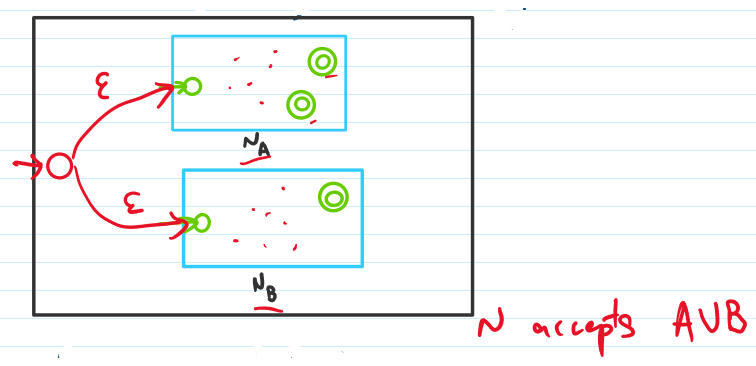 ε
N_A
ε
N_B
N accepts A∪B